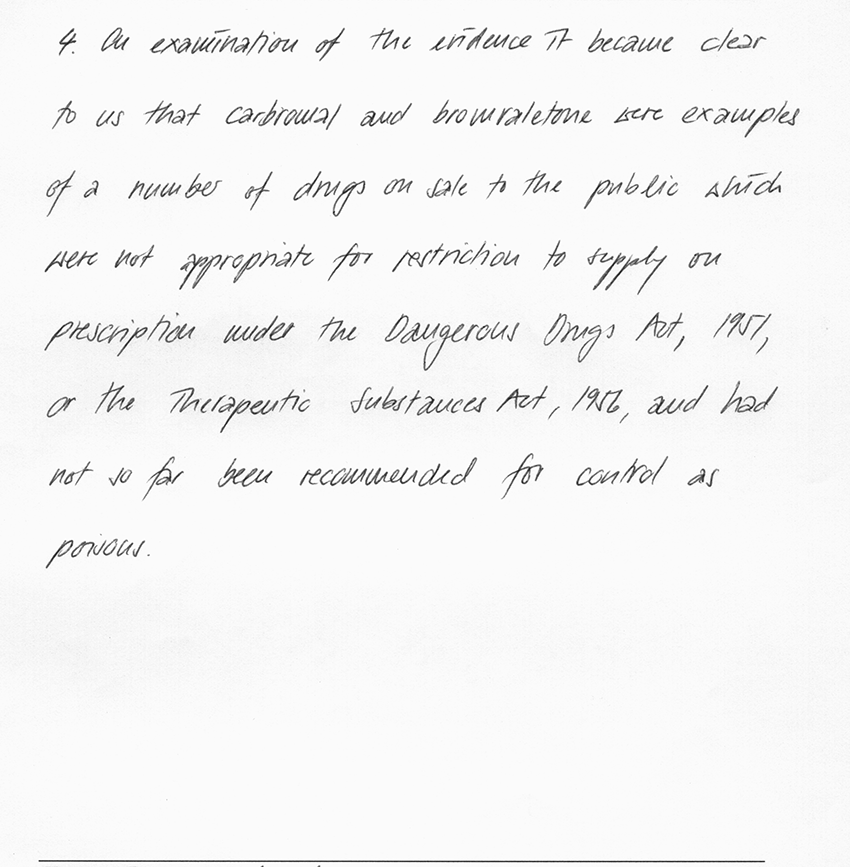 4. On examination of the evidence it became clear
to us that carbromal and bromvaletone were examples
of a number of drugs on sale to the public which
were not appropriate for restriction to supply on
prescription under the Dangerous Drugs Act, 1951,
or the Therapeutic Substances Act, 1956, and had
not so far been recommended for control as
poisons.